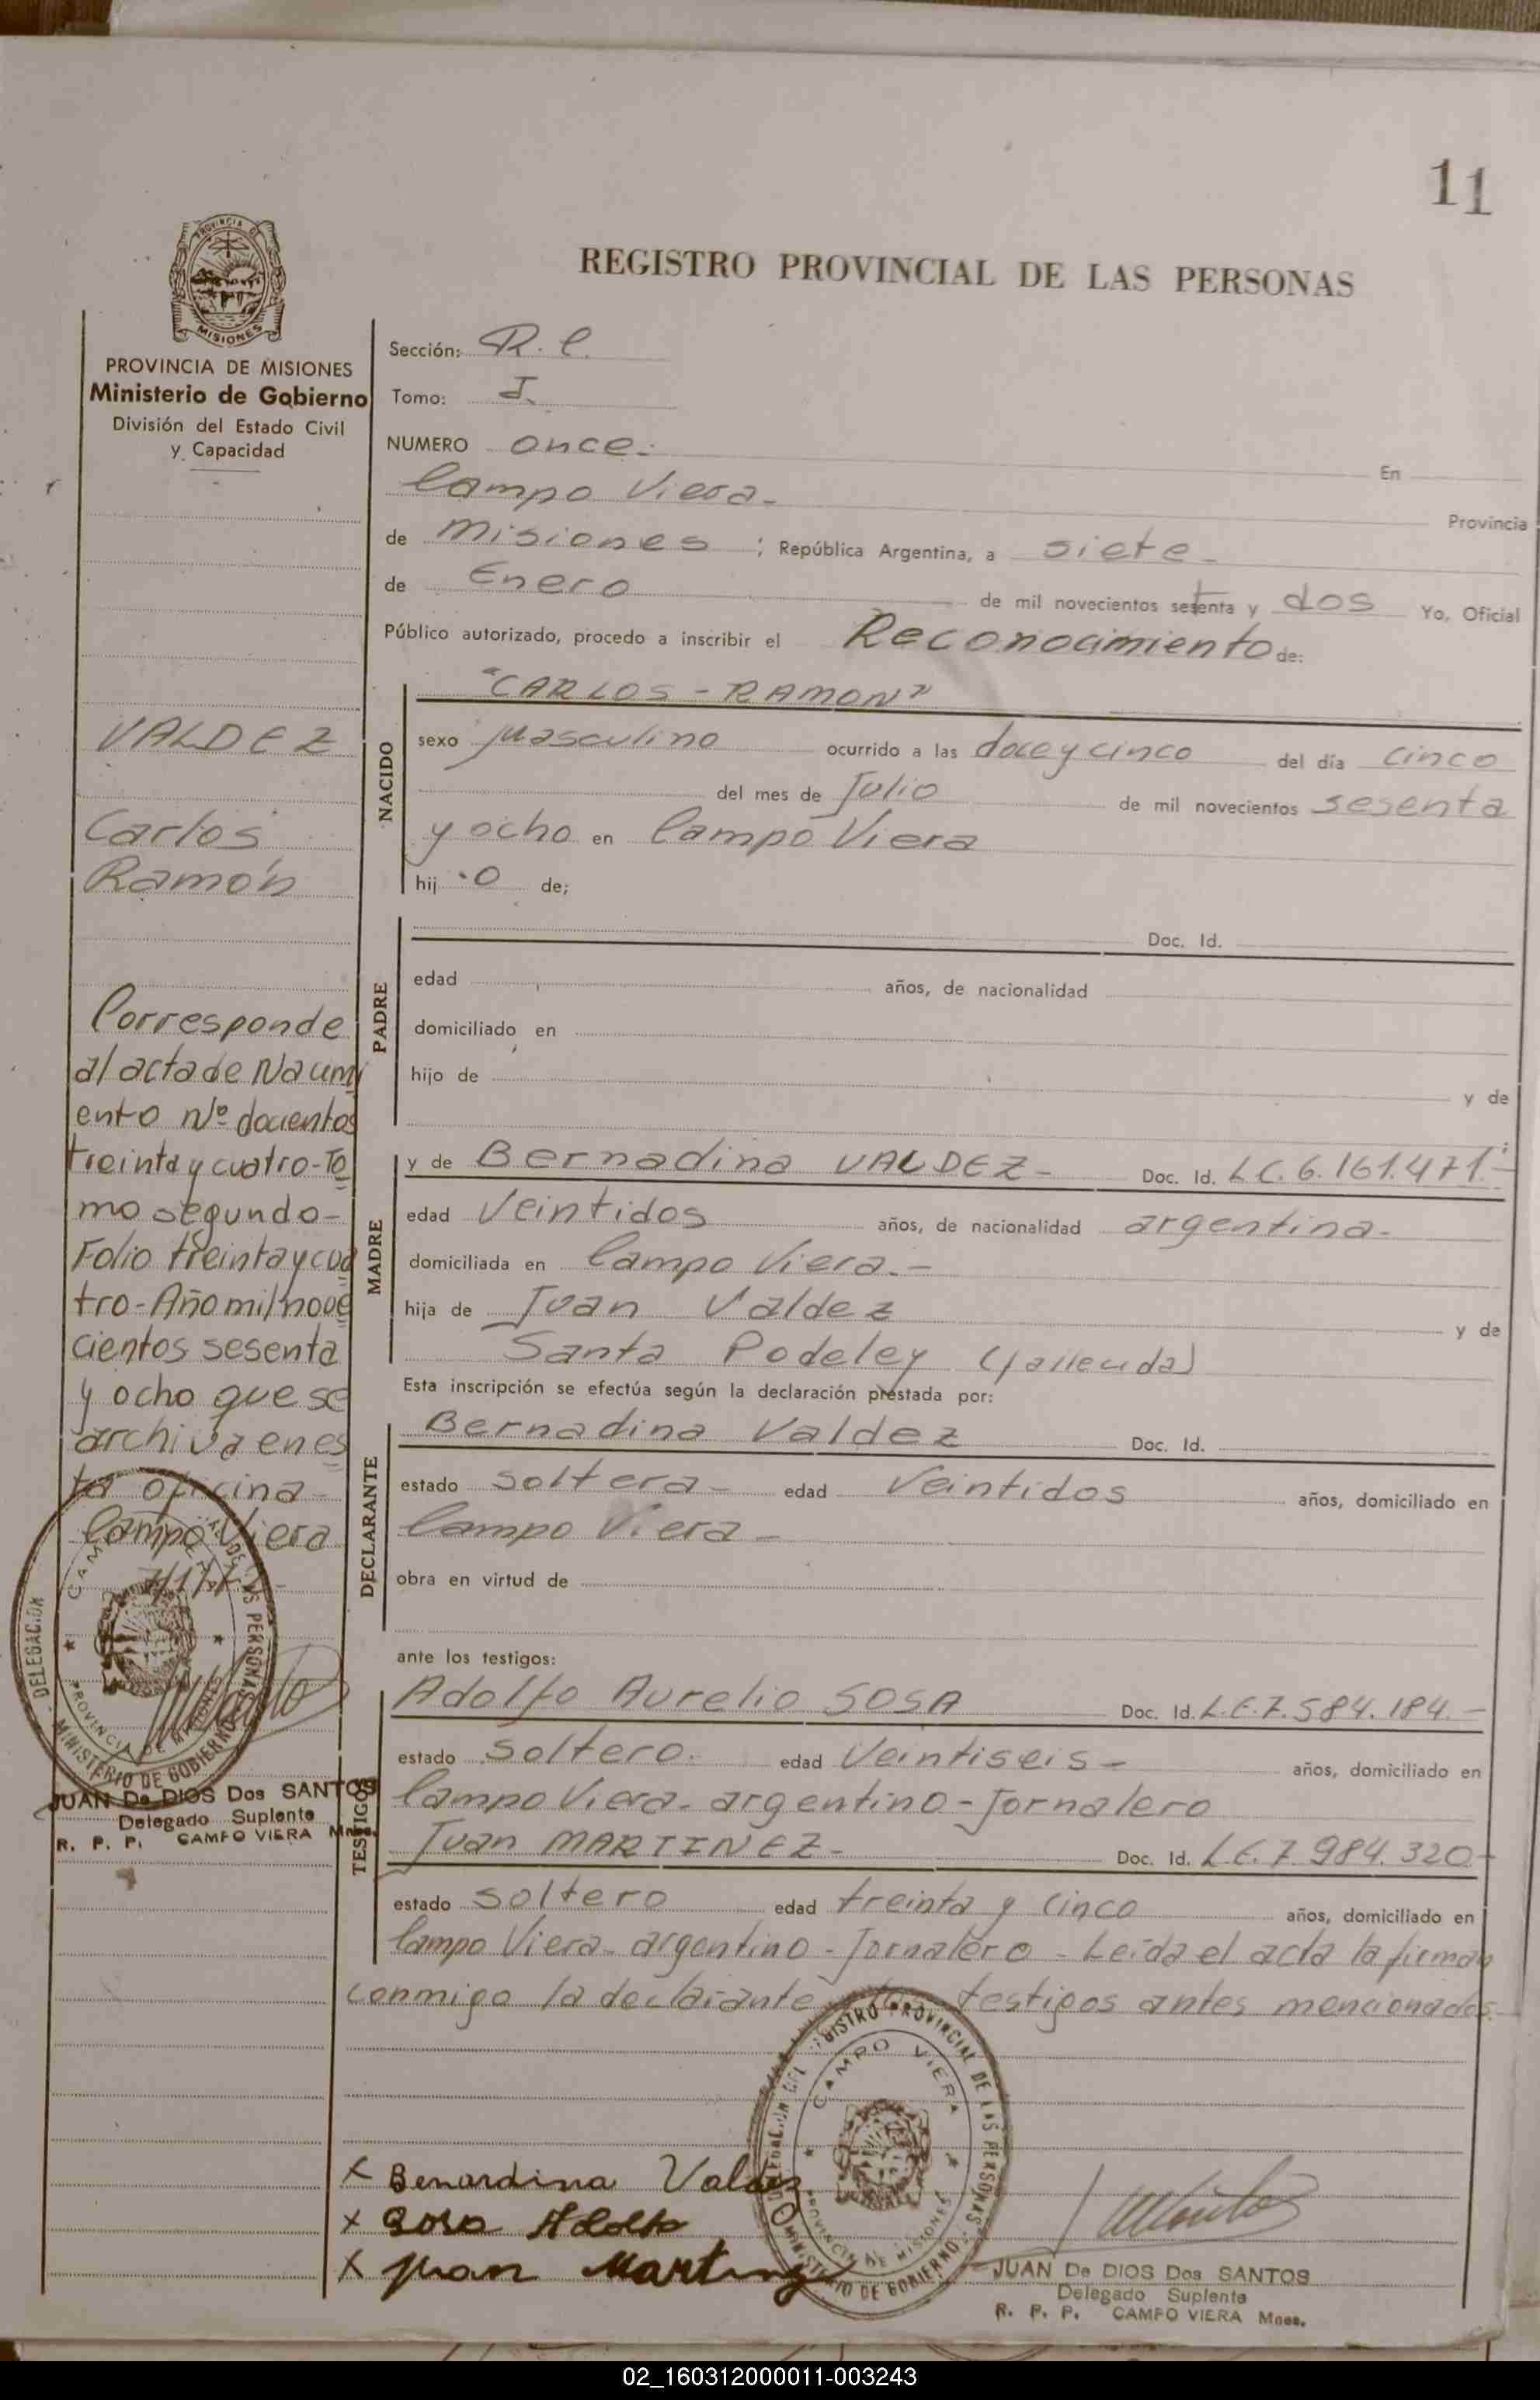 11
PROVINCIA DE
MISIONES
PROVINCIA DE MISIONES
Ministerio de Gobierno
División del Estado Civil
y Capacidad
REGISTRO PROVINCIAL DE LAS PERSONAS
Sección: R. C.
Tomo: I.
NUMERO once.- En
Campo Viera- Provincia
de Misiones ; República Argentina, a siete-
de Enero de mil novecientos setenta y dos Yo, Oficial
Público autorizado, procedo a inscribir el Reconocimiento de:
NACIDO
"CARLOS - RAMON"
sexo masculino ocurrido a las doce y cinco del día cinco
del mes de Julio de mil novecientos sesenta
y ocho en Campo Viera
hij o de;
PADRE
Doc. Id.
edad años, de nacionalidad
domiciliado en
hijo de y de
MADRE
y de Bernadina VALDEZ- Doc. Id. LC. 6.161.471.-
edad Veintidos años, de nacionalidad argentina-
domiciliada en Campo Viera.-
hija de Juan Valdez y de
Santa Podeley (fallecida)
Esta inscripción se efectúa según la declaración prestada por:
DECLARANTE
Bernadina Valdez Doc. Id.
estado Soltera- edad Veintidos años, domiciliado en
Campo Viera-
obra en virtud de
ante los testigos:
TESTIGOS
Adolfo Aurelio SOSA Doc. Id. L.E. 7.584.184.-
estado Soltero. edad Veintiseis- años, domiciliado en
Campo Viera- argentino - Jornalero
Juan MARTINEZ- Doc. Id. L.E. 7.984.320-
estado soltero edad treinta y cinco años, domiciliado en
Campo Viera- argentino - Jornalero - Leída el acta la firman
conmigo la declarante testigos antes mencionados.-
VALDEZ
Carlos
Ramón
Corresponde
al acta de Nacimi
ento Nº docientos
treinta y cuatro-To
mo segundo-
Folio treinta y cua
tro-Año mil nove
cientos sesenta
y ocho que se
archiva en es
ta oficina-
Campo Viera
7/1/72-
DELEGACION DE LAS PERSONAS
MINISTERIO DE GOBIERNO
PROVINCIA DE MISIONES
JUAN De DIOS Dos SANTOS
Delegado Suplente
R. P. P. CAMPO VIERA Mnes.
X Benardina Valdez
X Sosa Adolfo
X Juan Martinez
DELEGACION DEL REGISTRO PROVINCIAL DE LAS PERSONAS
CAMPO VIERA
PROVINCIA DE MISIONES
MINISTERIO DE GOBIERNO
JUAN De DIOS Dos SANTOS
Delegado Suplente
R. P. P. CAMPO VIERA Mnes.
02_160312000011-003243